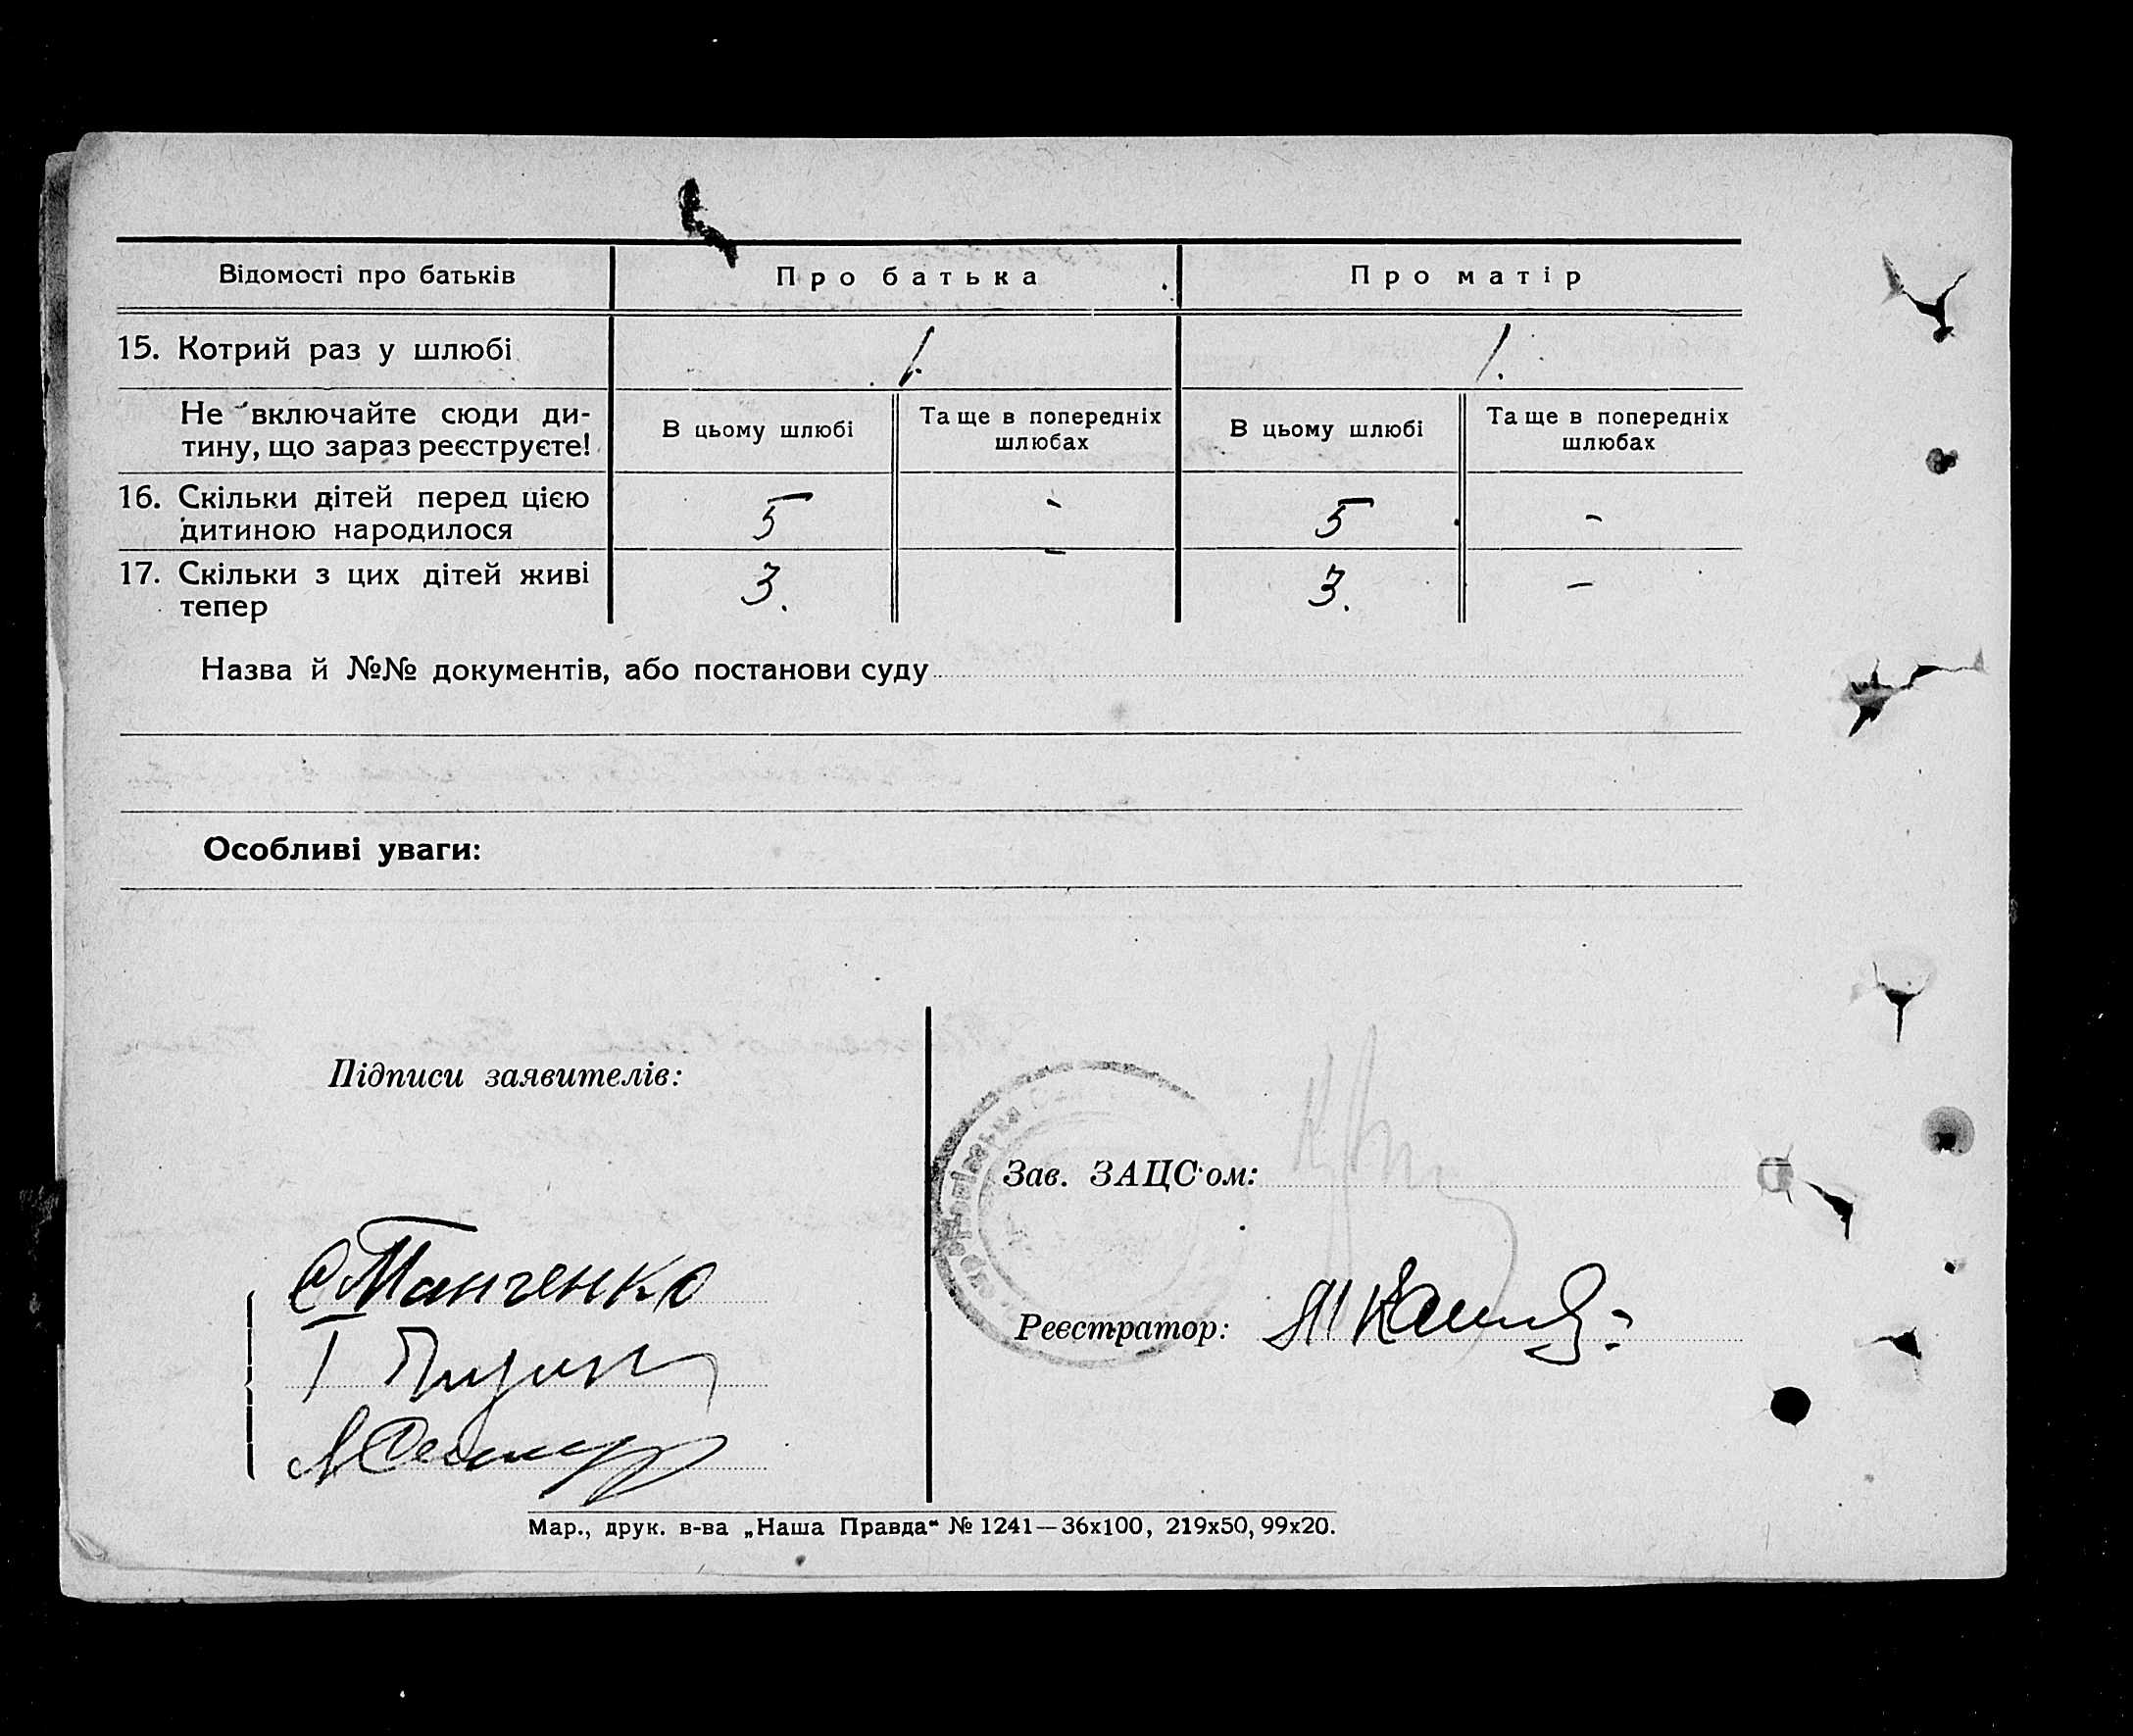 Відомості про батьків Про батька Про матір
15. Котрий раз у шлюбі 1. 1.
Не включайте сюди ди-
тину, що зараз реєструєте!
В цьому шлюбі Та ще в попередніх шлюбах В цьому шлюбі Та ще в попередніх шлюбах
16. Скільки дітей перед цією
дитиною народилося 5 - 5 -
17. Скільки з цих дітей живі
тепер 3. - 3. -
Назва й №№ документів, або постанови суду
Особливі уваги:
Підписи заявителів:
Зав. ЗАЦС'ом:
Реєстратор:
Мар., друк. в-ва „Наша Правда“ № 1241—36х100, 219х50, 99х20.